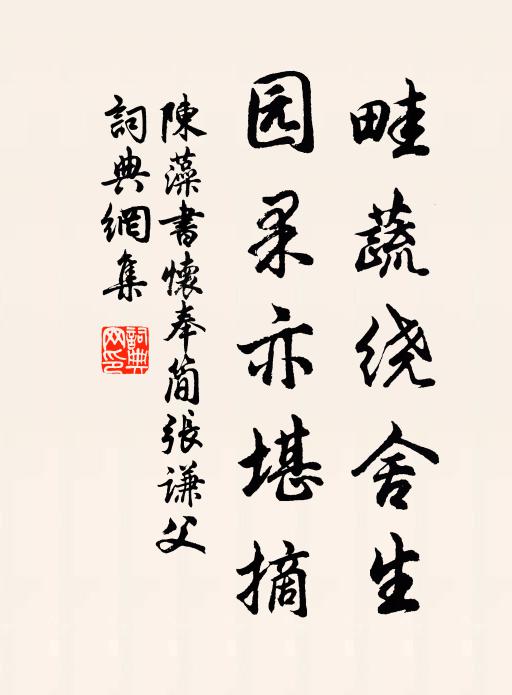 畦蔬绕舍生
园果亦堪摘
陳藻書懷奉简張谦父
詞典網集
詞典
网印